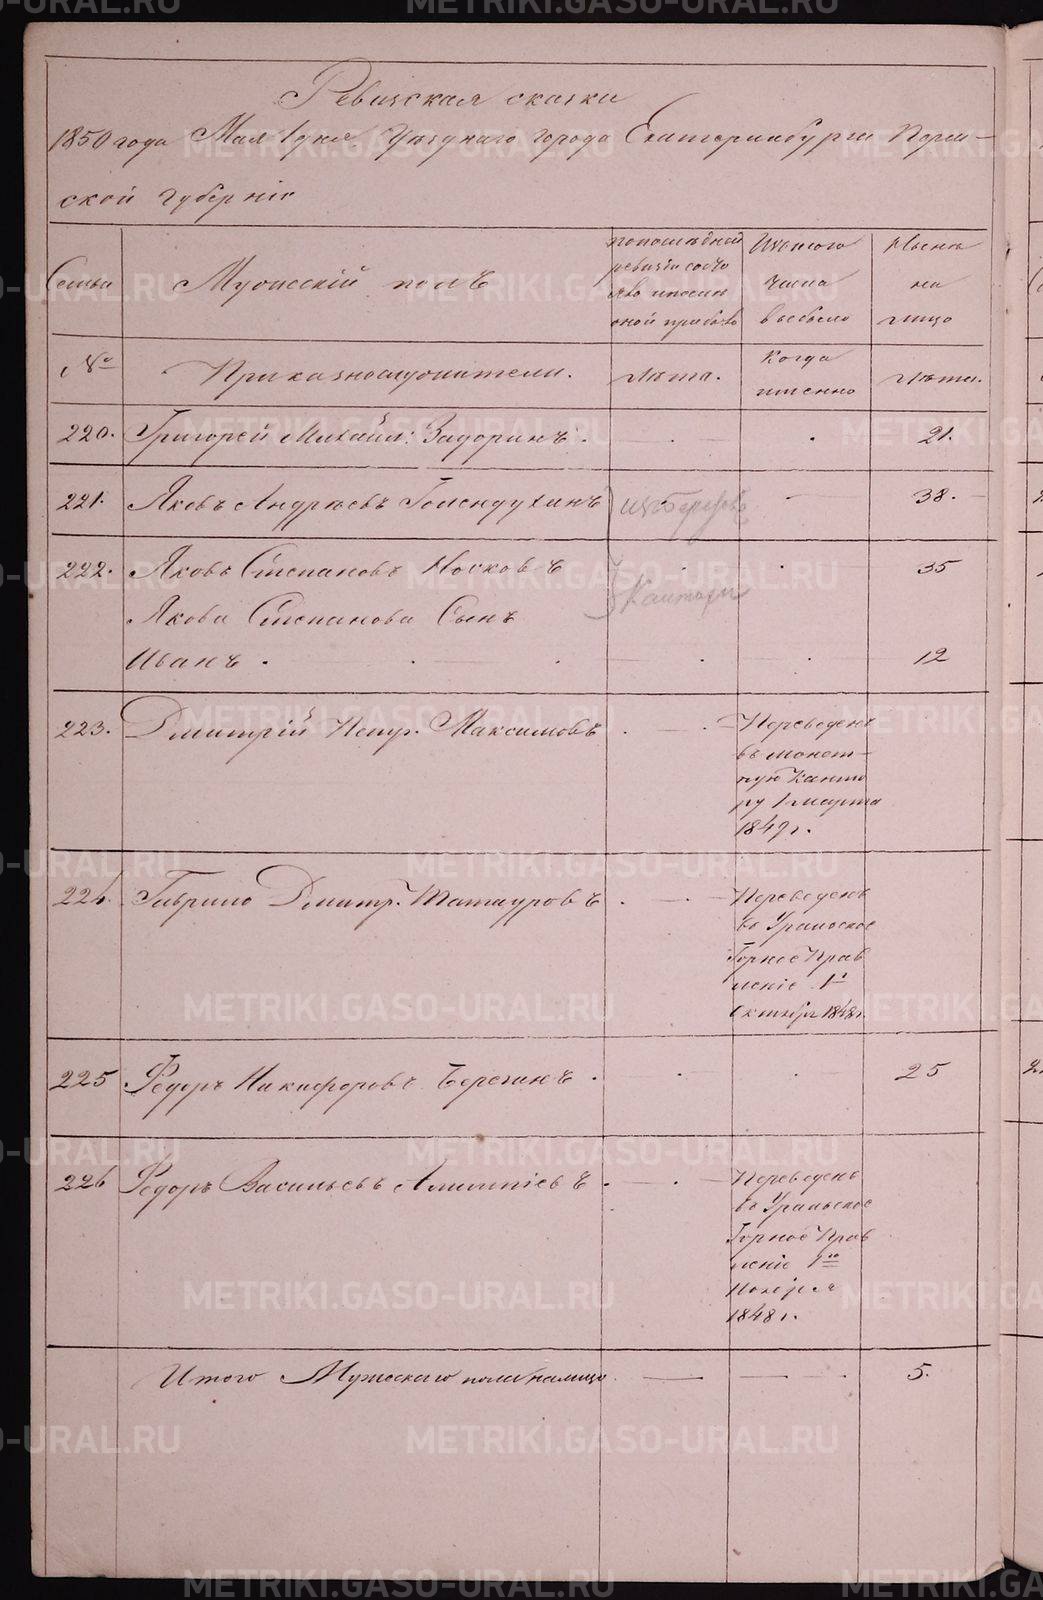 Ревизская сказка
1850 года Мая 1 дня Уезднаго города Екатеринбурга Перм-
ской губерніи
Семьи
Мужескій полъ
по последней
ревизіи состо
яло и после
оной прибыло
Изъ того
числа
выбыло
Ныне
на
лицо
№
Приказнослужители.
лета.
Когда
именно
лета.
220. Григорей Михайл: Задоринъ. 21.
221. Яковъ Андреевъ Голендухинъ 38.
222. Яковъ Степановъ Носковъ 35
Канторы
Якова Степанова Сынъ
Иванъ. 12
223. Дмитрій Петр. Максимовъ
Переведенъ
въ монет-
ную Канто
ру 1 марта
1849 г.
224. Гаврило Дмитр. Татауровъ
Переведенъ
въ Уральское
Горное Прав
леніе 1го
Октября 1848 г.
225 Федоръ Никифоровъ Березинъ. 25
226 Федоръ Васильевъ Алимпіевъ.
Переведенъ
въ Уральское
Горное Прав
леніе 1го
Ноября
1848 г.
Итого Мужескаго пола налицо 5.
METRIKI.GASO-URAL.RU